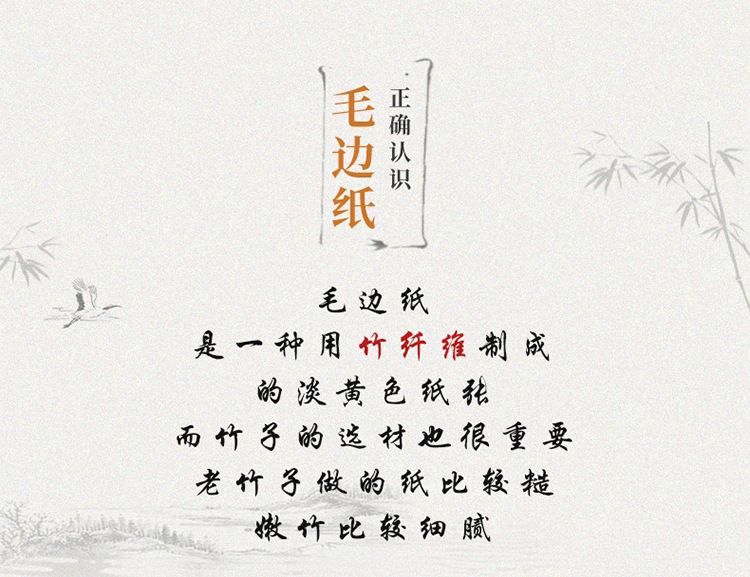 正确认识
毛边纸
毛边纸
是一种用竹纤维制成
的淡黄色纸张
而竹子的选材也很重要
老竹子做的纸比较糙
嫩竹比较细腻